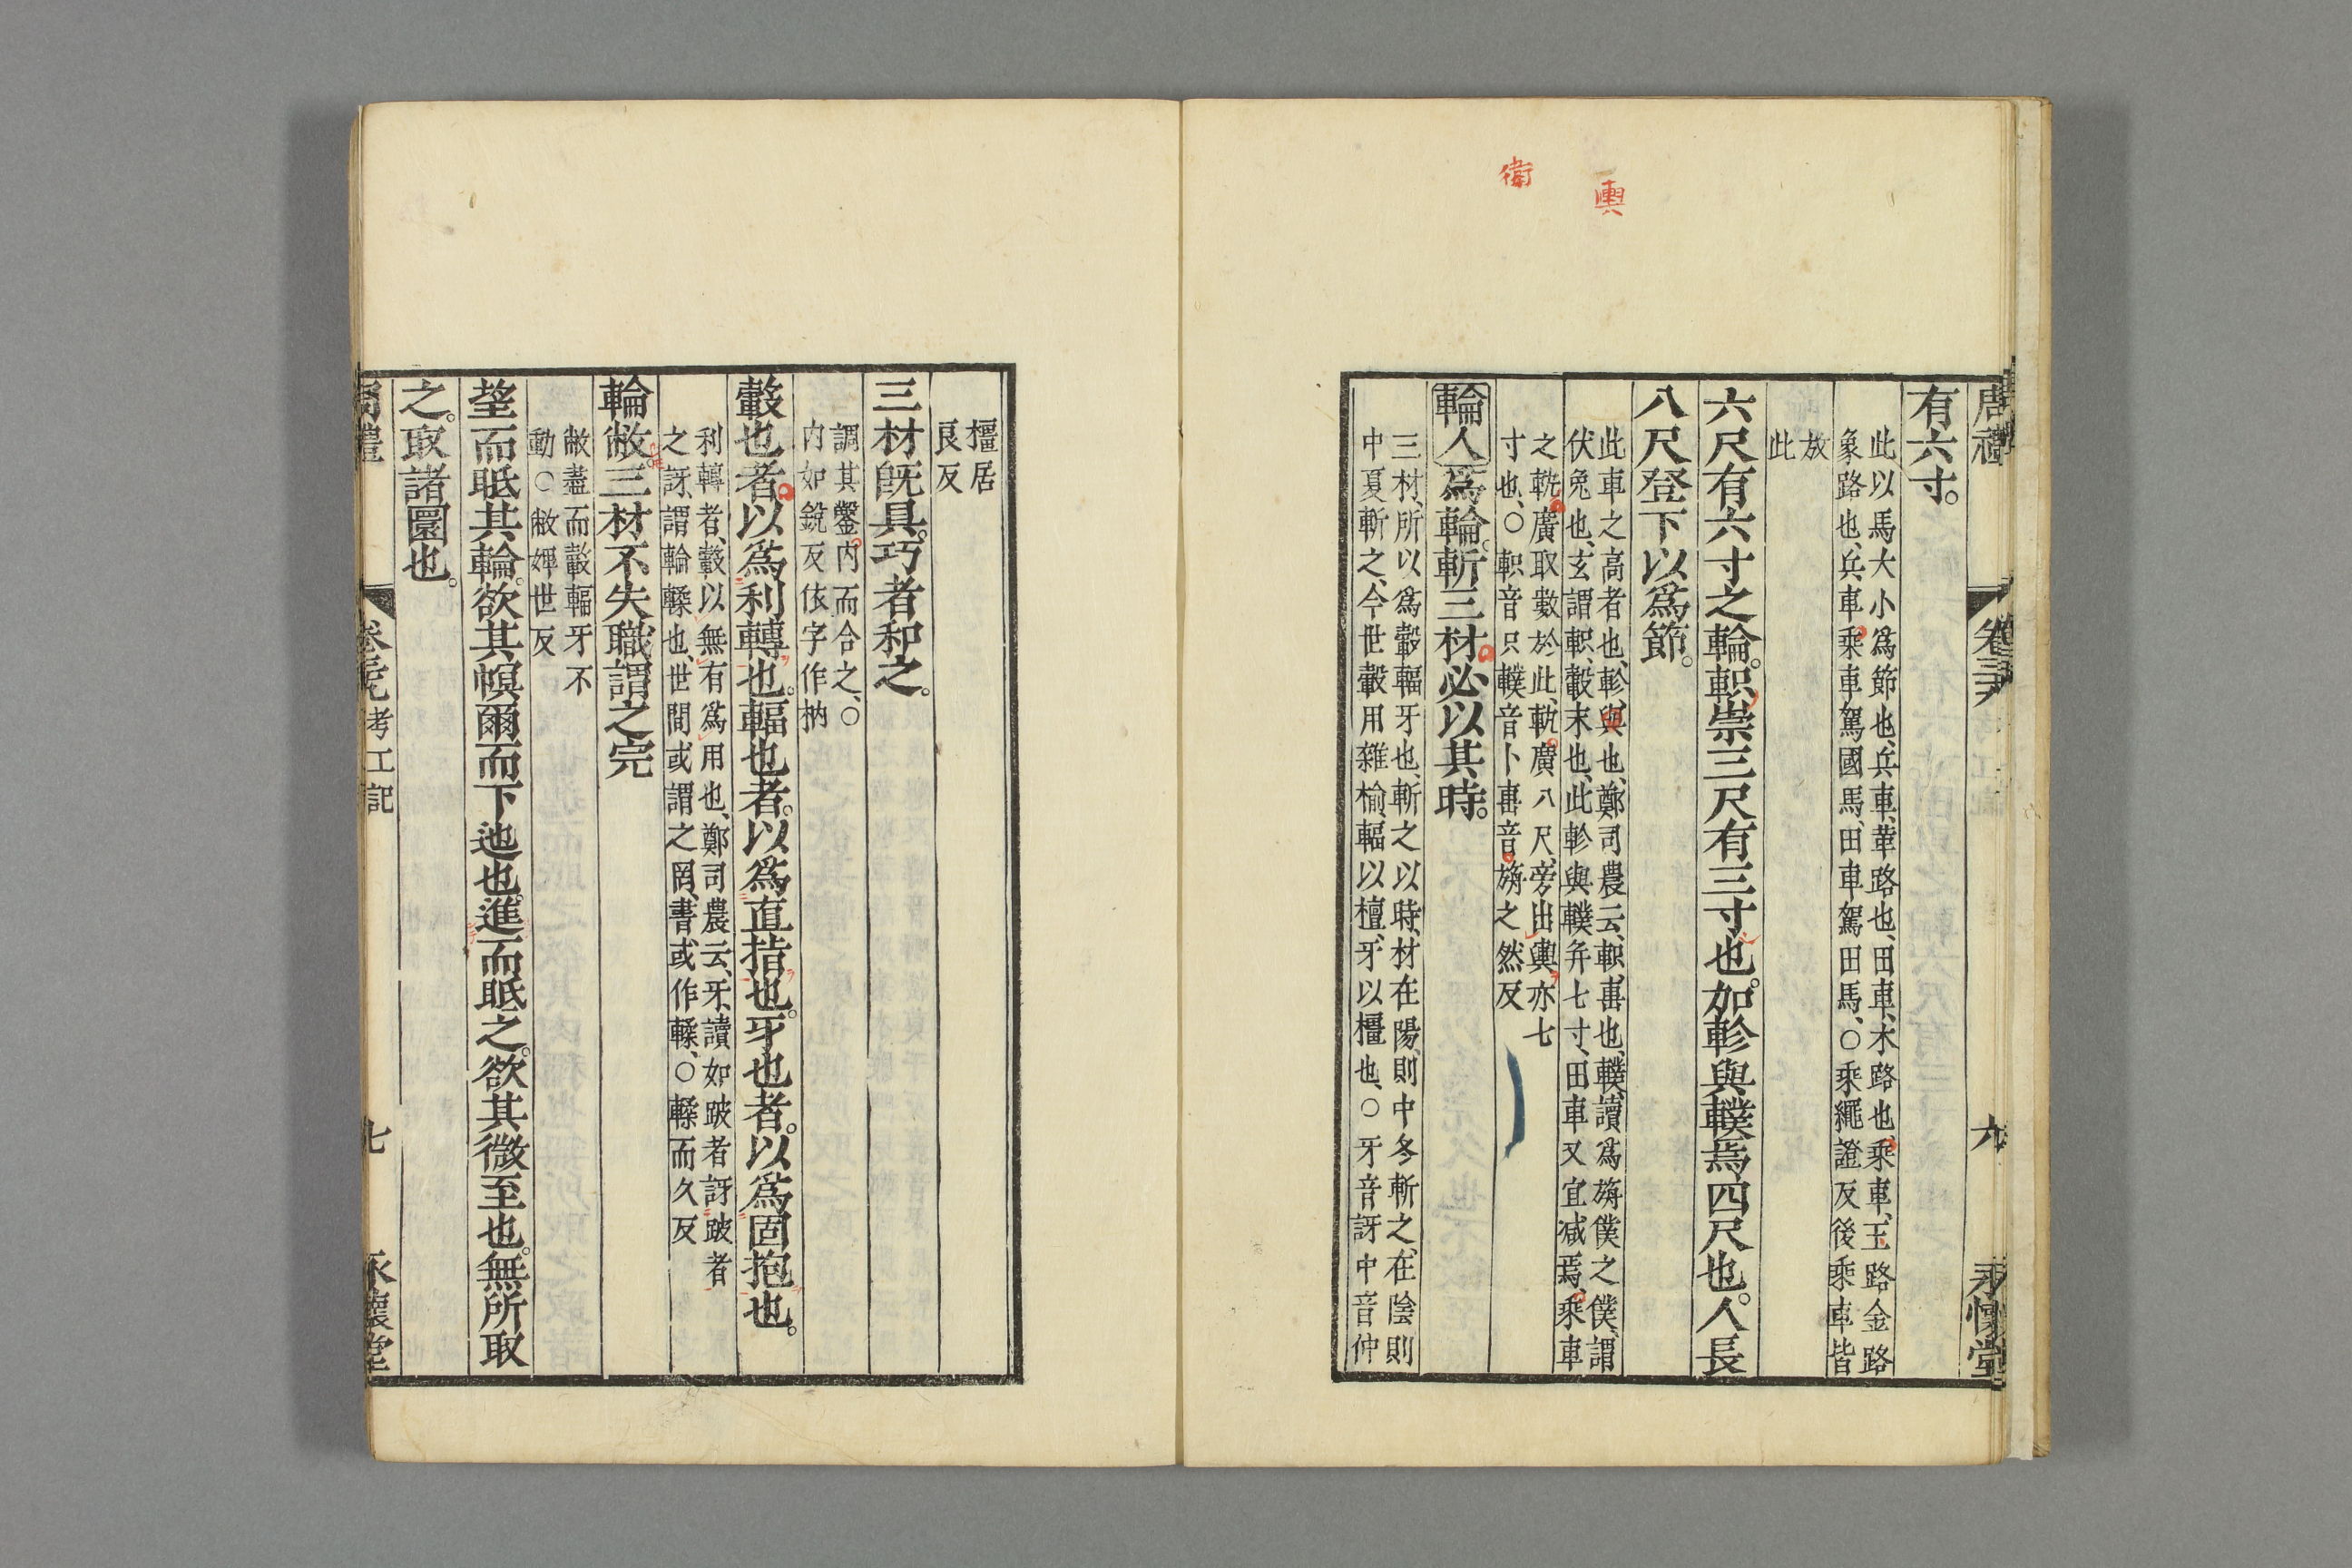 周禮　卷三九　六　永懷堂
有六寸。
此以馬大小爲節也、兵車、革路也、田車、木路也、乘車、玉路金路
象路也、兵車乘車駕國馬、田車駕田馬、○乘繩證反後乘車皆
放
此
六尺有六寸之輪。軹崇三尺有三寸也。如軫與轐焉四尺也。人長
八尺登下以爲節。
輿
此車之高者也、軫、與也、鄭司農云、軹、軎也、轐、讀爲旃僕之僕、謂
伏兔也、玄謂軹、轂末也、此軫與轐并七寸、田車又宜减焉、乘車
衛
之軌廣取數於此、軌廣八尺、旁出輿亦七
寸也、○軹音只轐音卜軎音旃之然反
輪人爲輪。斬三材。必以其時。
三材、所以爲轂輻牙也、斬之以時、材在陽、則中冬斬之、在陰則
中夏斬之、今世轂用雜楡、輻以檀、牙以橿也、○牙音訝中音仲
橿居
良反
三材旣具。巧者和之。
調其鑿内而合之、○
内如銳反依字作枘
轂也者。以爲利轉也。輻也者。以爲直指也。牙也者。以爲固抱也。
利轉者、轂以無有爲用也、鄭司農云、牙、讀如跛者訝跛者
之訝、謂輪輮也、世間或謂之罔、書或作輮、○輮而久反
輪敝三材不失職謂之完
敝盡而轂輻牙不
動○敝婢世反
望而眡其輪。欲其幎爾而下迆也。進而眡之。欲其微至也。無所取
之。取諸圜也。
周禮　卷三九考工記　七　永懷堂